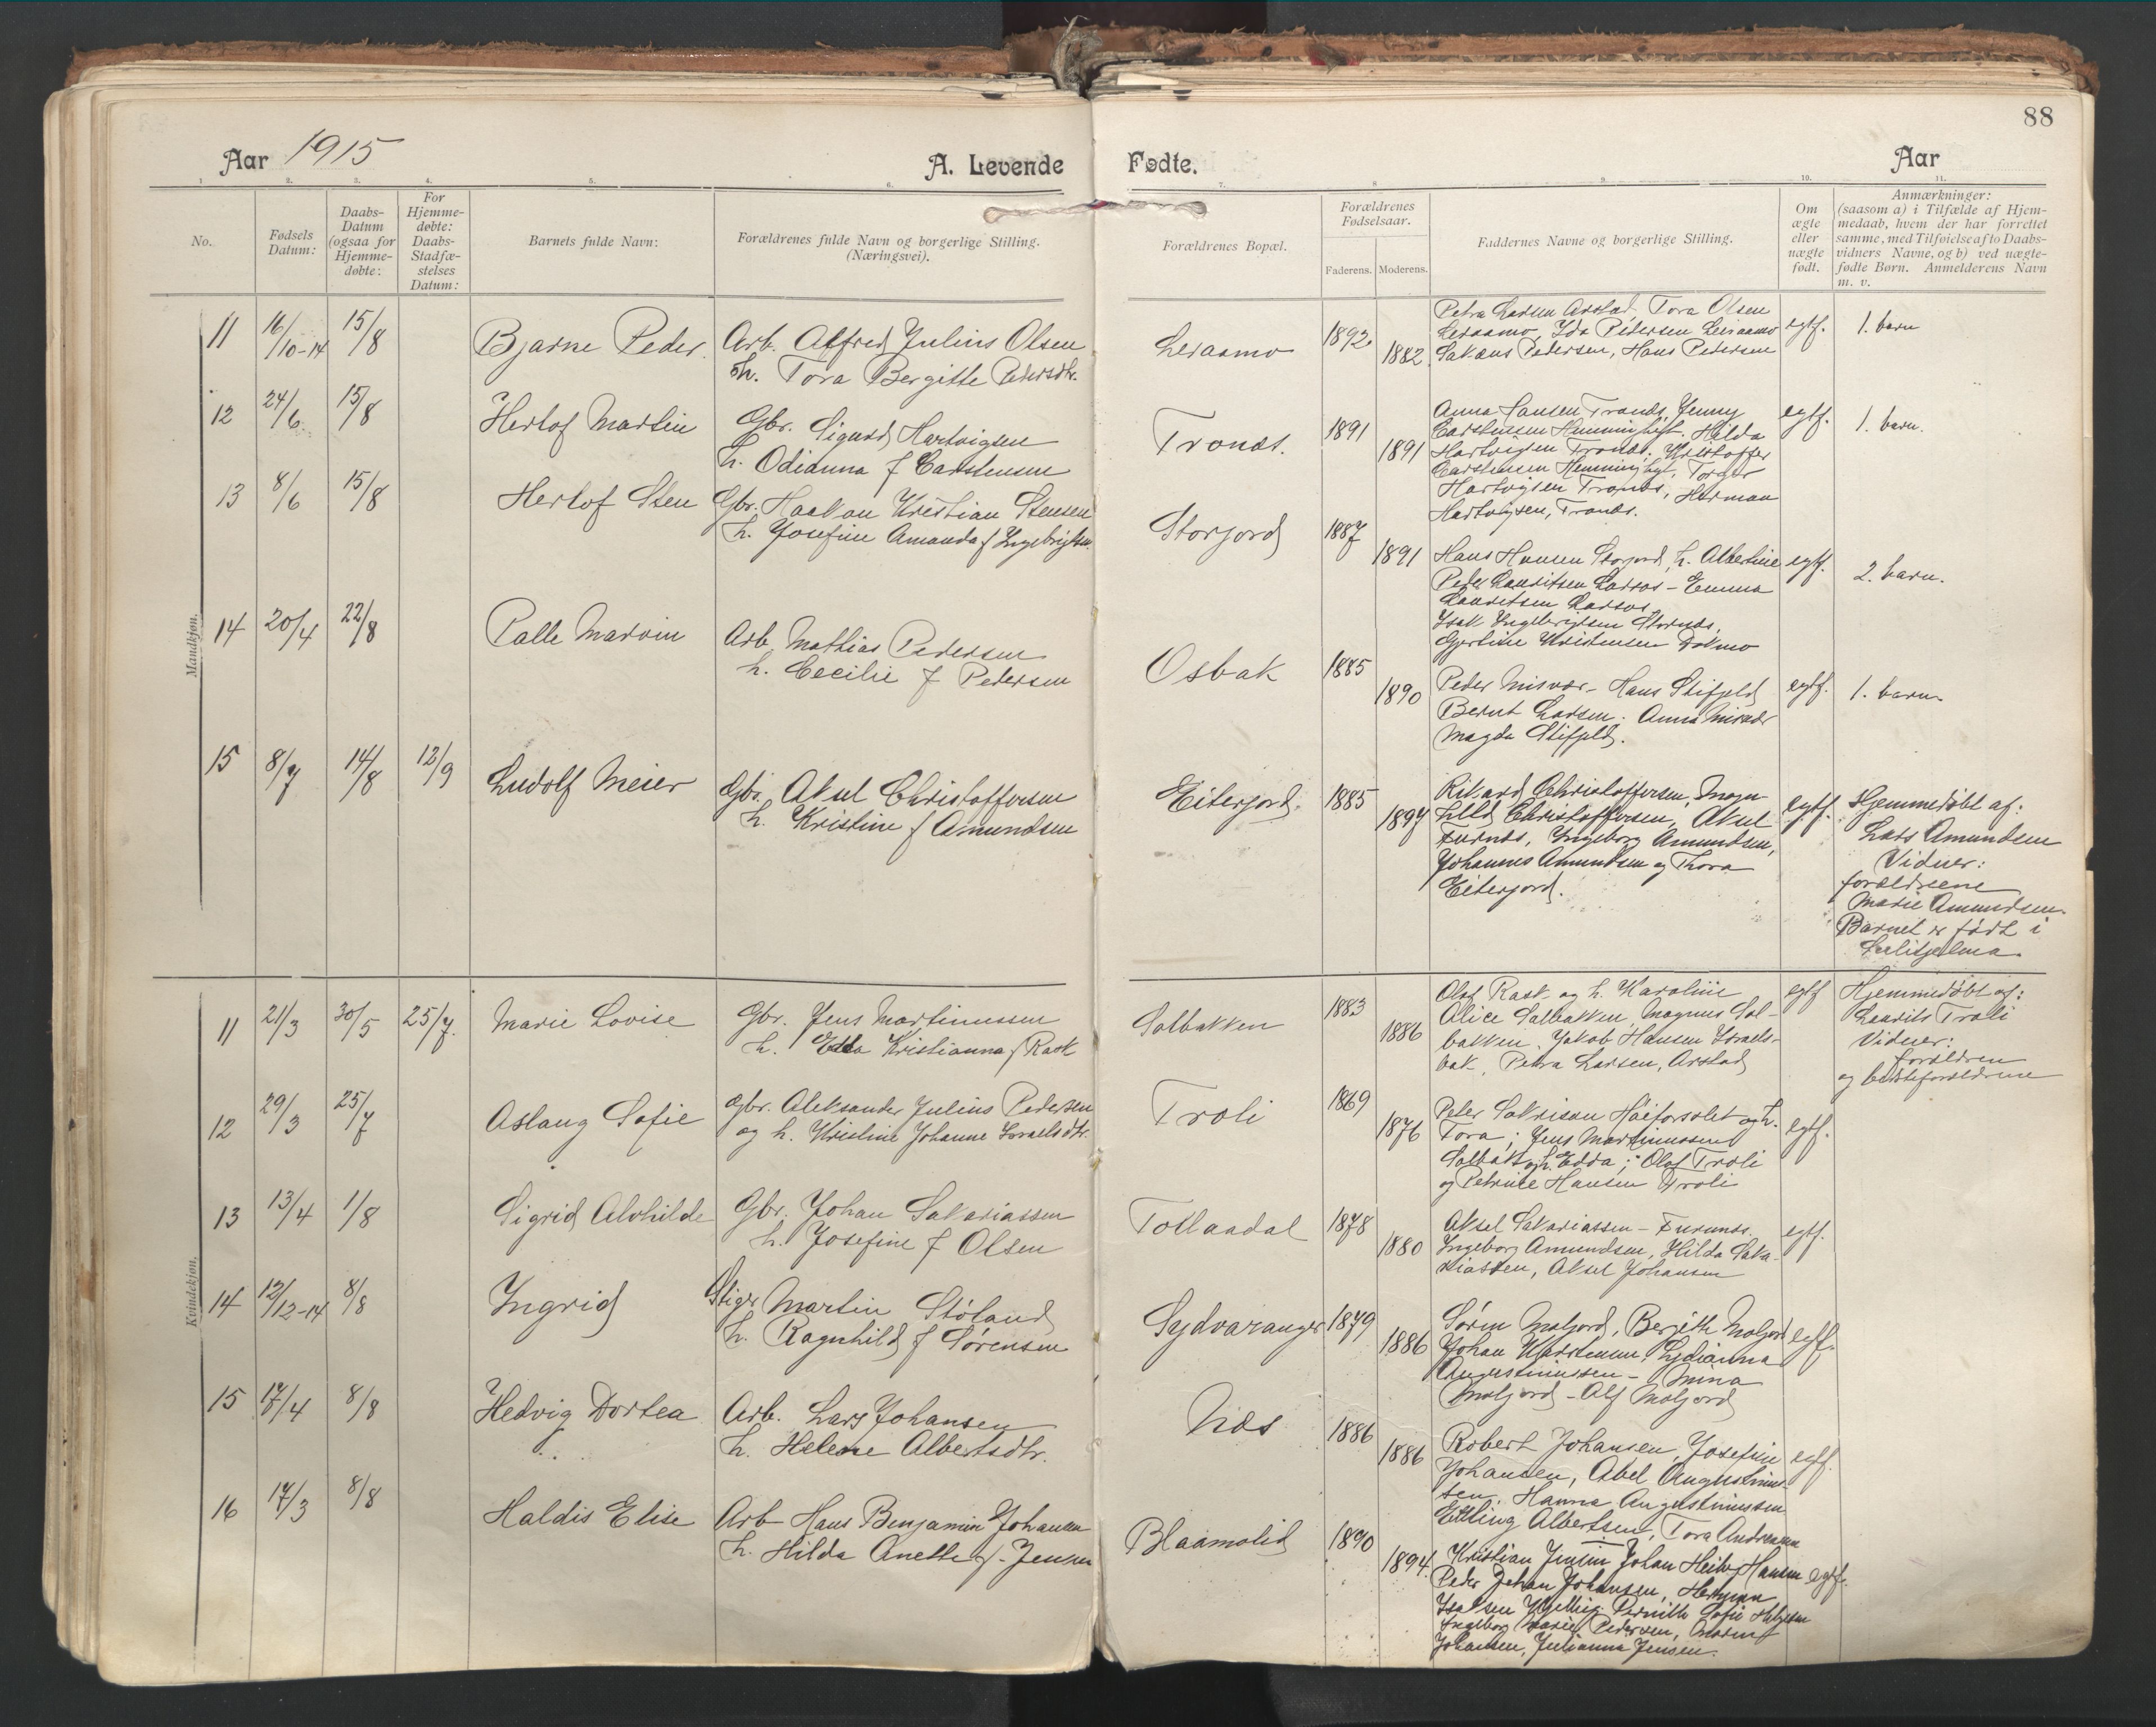 88
Aar 1915
A. Levende
Fødte.
Aar
1. 2. 3. 4. 5. 6. 7. 8 9. 10. 11.
No.
Fødsels
Datum:
Daabs-
Datum
(ogsaa for
Hjemme-
døbte:
For
Hjemme-
døbte:
Daabs-
Stadfæ-
stelses
Datum:
Barnets fulde Navn:
Forældrenes fulde Navn og borgerlige Stilling.
(Næringsvei).
Forældrenes Bopæl.
Forældrenes
Fødselsaar.
Faderens. Moderens.
Faddernes Navne og borgerlige Stilling.
Om
ægte
eller
uægte
født.
Anmærkninger:
(saasom a) i Tilfælde af Hjem-
medaab, hvem der har forrettet
samme, med Tilføielse af to Daabs-
vidners Navne, og b) ved uægte-
fødte Børn. Anmelderens Navn
m. v.
Mandkjøn.
11 16/10-14 15/8 Bjarne Peder
Arb. Alfred Julius Olsen
h. Tora Bergitte Pedersdtr.
Leraamo 1892 1882
Petra Larsen Arstad, Tora Olsen
Leraamo, Ida Pedersen Leiraamo
Sakæus Pedersen, Hans Pedersen
egtf. 1. barn
12 24/6 15/8 Herlof Martin
Gbr. Sigurd Hartvigsen
h. Odianna f Carstensen
Tronæs. 1891 1891
Anna Hansen Tronæs, Jenny
Carstensen Hemminghyt. Hilda
Hartvigsen Tronæs. Kristoffer
Carstensen Hemminghyt, Torger
Hartvigsen Tronæs, Herman
Hartvigsen, Tronæs.
egtf. 1. barn.
13 8/6 15/8 Herlof Sten
Gbr. Haakon Kristian Stensen
h. Josefine Amanda f Ingebrigtsen
Storjord 1887 1891
Hans Hansen Storjord, h. Albertine
Peder Lauritsen Larsos - Emma
Lauritsen Larsos
Isak Ingebrigtsen Stornæs,
Gjertine Kristensen Dokmo
egtf. 2. barn.
14 20/4 22/8 Palle Marvin
Arb Mathias Pedersen
h. Cecilie f Pedersen
Osbak 1885 1890
Peder Misvær - Hans Stifjeld
Bernt Larsen. Anna Misvær
Magda Stifjeld.
egtf. 1. barn.
15 8/7 14/8 12/9 Ludolf Meier
Gbr. Aksel Christoffersen
h. Kristine f Amundsen
Eiterjord. 1885 1897
Rikard Christoffersen, Mogn
Lilly Christoffersen, Aksel
Furnæs, Ingeborg Amundsen,
Johannes Amundsen og Thora
Eiterjord.
egtf. Hjemmedøbt af:
Lars Amundsen
Vidner:
forældrene
Marie Amundsen.
Barnet er født i
Sulitjelma.
Kvindekjøn.
11 21/3 30/5 25/7. Marie Lovise
Gbr. Jens Martinussen
h. Edda Kristianna f Rask
Solbakken 1883 1886
Olaf Rask og h. Karoline
Alice Solbakken, Magnus Sol-
bakken, Jakob Hansen Israels-
bak, Petra Larsen, Arstad
egtf Hjemmedøbt af:
Laurits Troli
Vidner:
forældren
og besteforældrene
12 29/3 25/7 Aslaug Sofie
Gbr. Aleksander Julius Pedersen
og h. Kristine Johanne Israelsdtr.
Troli 1869 1876
Peter Sakrisen Høiforsslet og h.
Tora; Jens Martinussen
Solbak og h. Edda; Olaf Troli
og Petrine Hansen Troli
egtf.
13 13/4 1/8 Sigrid Alvhilde
Gbr. Johan Sakariassen
h. Josefine f Olsen
Tollaadal 1878 1880
Aksel Sakariassen - Furunæs.
Ingeborg Amundsen, Hilda Saka-
riassen, Aksel Johansen
egtf.
14 12/12-14 8/8 Ingrid
Stiger Martin Støland
h. Ragnhild f Sørensen
Sydvaranger 1879 1886
Søren Moljord, Bergitte Moljord
Johan Karstensen, Lydianna
Augustinussen - Anna
Moljord - Alf Moljord
egtf.
15 17/4 8/8 Hedvig Dortea
Arb. Lars Johansen
h. Helene Albertsdtr.
Næs 1886 1886
Robert Johansen, Josefine
Johansen, Abel Augustinus-
sen, Hanna Augustinussen
Erling Albertsen, Tora Andreassen
egtf.
16 17/3 8/8 Haldis Elise
Arb Hans Benjamin Johansen
h. Hilda Anette f. Jensen
Blaamolid 1890 1894.
Kristian Jensen Johan Heiberg Hansen
Peder Johan Johansen, Herman
Isaksen Kjelling. Pernille Sofie
Ingeborg Marie Pedersen,
Johansen, Julianna Jensen.
egtf.